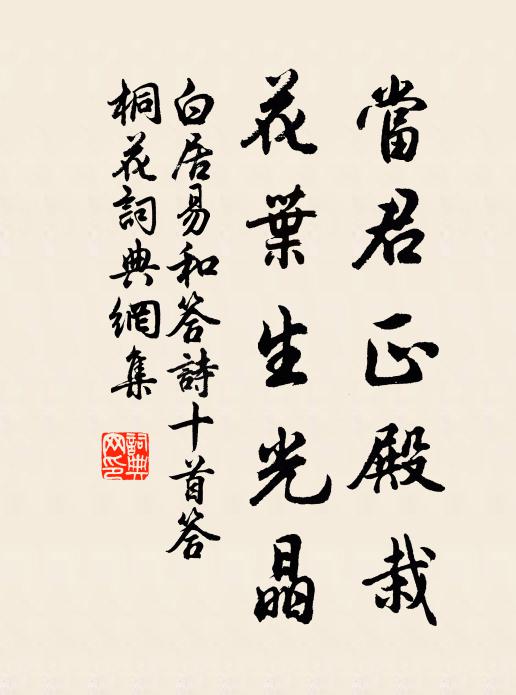 當君正殿栽
花葉生光晶
白居易和答詩十首答
桐花詞典網集
詞典網印